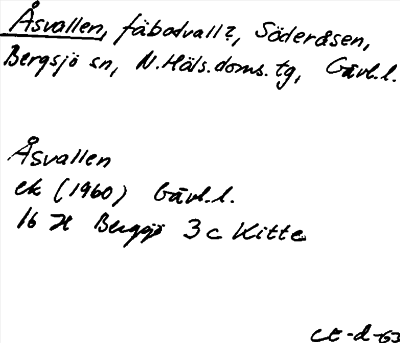 Åsvallen, fäbodvall?, Söderåsen,
Bergsjö sn, N.Häls.doms.tg, Gävl.l.
Åsvallen
ek (1960) Gävl.l.
16 H Bergsjö 3c Kitte
CE-d-63